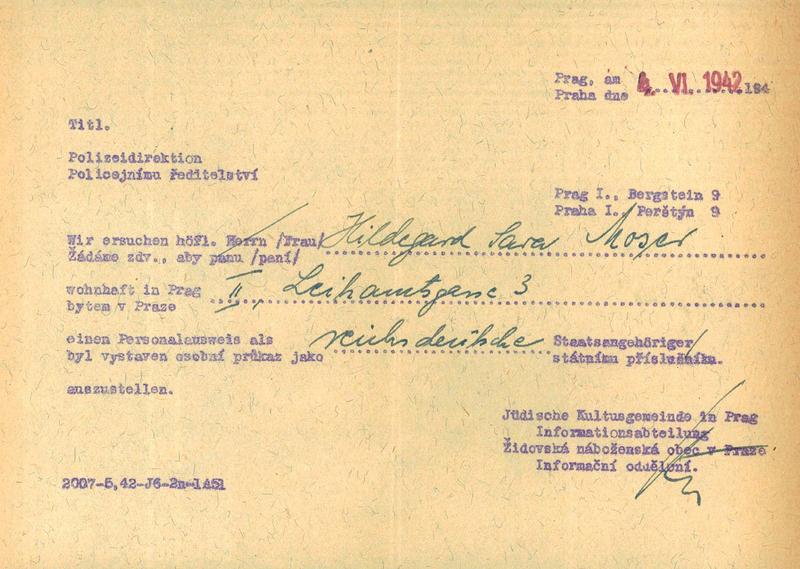 Prag, am
Praha dne 4. VI. 1942 194
Titl.
Polizeidirektion
Policejnímu ředitelství
Prag I., Bergstein 9
Praha I., Perštýn 9
Wir ersuchen höfl. Herrn /Frau/ Hildegard Sara Moser
Žádáme zdv., aby pánu /paní/
wohnhaft in Prag II, Leihamtsgasse 3
bytem v Praze
einen Personalausweis als reichsdeutsche Staatsangehöriger
byl vystaven osobní průkaz jako státnímu příslušníku.
auszustellen.
Jüdische Kultusgemeinde in Prag
Informationsabteilung
Židovská náboženská obec v Praze
Informační oddělení.
2007-5,42-J6-2n-1451